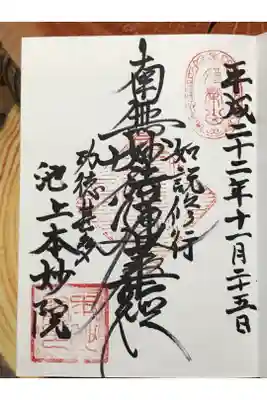 平成二十二年十一月二十五日
如説修行
南無妙法蓮華経
功徳甚多
池上本妙院